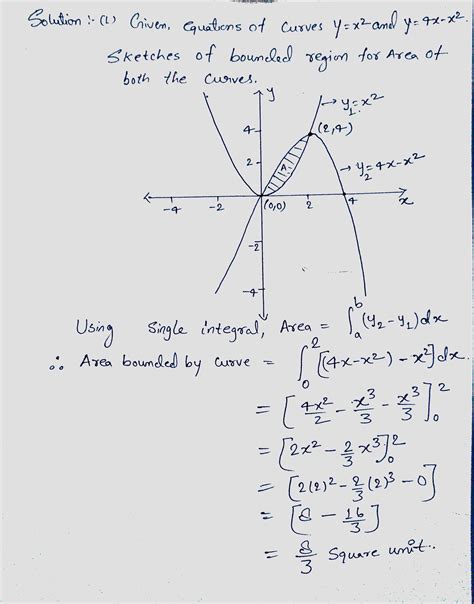 Solution :- (1) Given, equations of curves y=x² and y=4x-x².
Sketches of bounded region for Area of
both the curves.
y
y₁=x²
4
(2,4)
2
A
y₂=4x-x²
-4 -2 (0,0) 2 4 x
-2
-4
Using single integral, Area = ∫ₐᵇ (y₂-y₁)dx
∴ Area bounded by curve = ∫₀² [(4x-x²)-x²]dx.
= [4x²/2 - x³/3 - x³/3]₀²
= [2x² - 2/3 x³]₀²
= [2(2)² - 2/3 (2)³ - 0]
= [8 - 16/3]
= 8/3 Square unit..